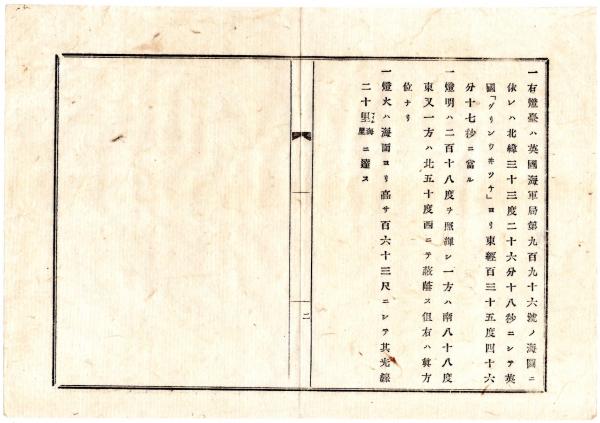 一右燈臺ハ英國海軍局第九百九十六號ノ海圖ニ
依レハ北緯三十三度二十六分十八秒ニシテ英
國「グリンウ井ツチ」ヨリ東經百三十五度四十六
分十七秒ニ當ル
一燈明ハ二百十八度ヲ照輝シ一方ハ南八十八度
東又一方ハ北五十度西ニテ蔽蔭ス但右ハ眞方
位ナリ
一燈火ハ海面ヨリ高サ百六十三尺ニシテ其光線
二十里海里ニ達ス
二